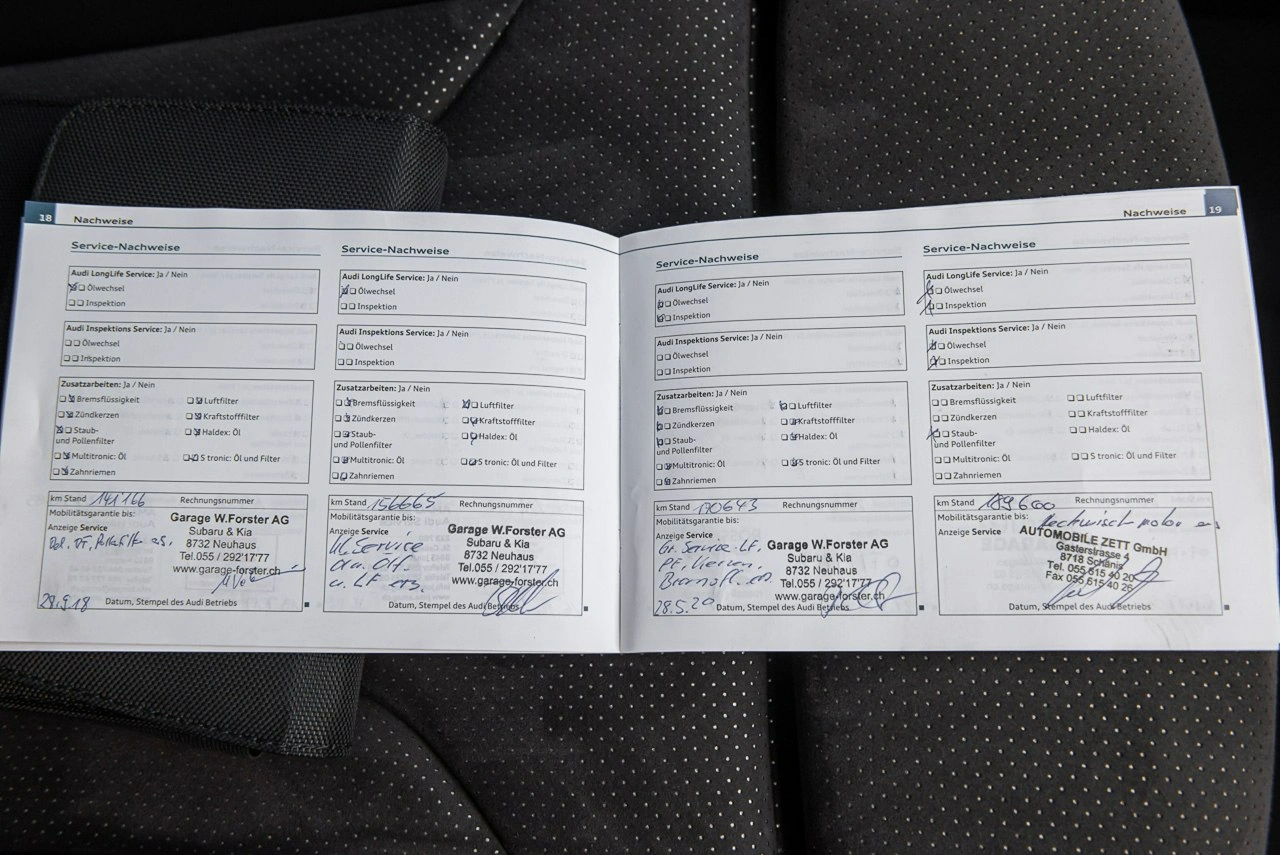 18 Nachweise
Service-Nachweise
Audi LongLife Service: Ja / Nein
Ölwechsel
Inspektion
Audi Inspektions Service: Ja / Nein
Ölwechsel
Inspektion
Zusatzarbeiten: Ja / Nein
Bremsflüssigkeit Luftfilter
Zündkerzen Kraftstofffilter
Staub- Haldex: Öl
und Pollenfilter
Multitronic: Öl S tronic: Öl und Filter
Zahnriemen
km Stand 141166 Rechnungsnummer
Mobilitätsgarantie bis:
Anzeige Service
Garage W.Forster AG
Subaru & Kia
8732 Neuhaus
Tel.055 / 292'17'77
www.garage-forster.ch
28.9.18
Datum, Stempel des Audi Betriebs
Service-Nachweise
Audi LongLife Service: Ja / Nein
Ölwechsel
Inspektion
Audi Inspektions Service: Ja / Nein
Ölwechsel
Inspektion
Zusatzarbeiten: Ja / Nein
Bremsflüssigkeit Luftfilter
Zündkerzen Kraftstofffilter
Staub- Haldex: Öl
und Pollenfilter
Multitronic: Öl S tronic: Öl und Filter
Zahnriemen
km Stand 156665 Rechnungsnummer
Mobilitätsgarantie bis:
Anzeige Service
Kl. Service
u. LF ers.
Garage W.Forster AG
Subaru & Kia
8732 Neuhaus
Tel.055 / 292'17'77
www.garage-forster.ch
Datum, Stempel des Audi Betriebs
Nachweise 19
Service-Nachweise
Audi LongLife Service: Ja / Nein
Ölwechsel
Inspektion
Audi Inspektions Service: Ja / Nein
Ölwechsel
Inspektion
Zusatzarbeiten: Ja / Nein
Bremsflüssigkeit Luftfilter
Zündkerzen Kraftstofffilter
Staub- Haldex: Öl
und Pollenfilter
Multitronic: Öl S tronic: Öl und Filter
Zahnriemen
km Stand 170643 Rechnungsnummer
Mobilitätsgarantie bis:
Anzeige Service
Gr. Service LF,
Garage W.Forster AG
Subaru & Kia
8732 Neuhaus
Tel.055 / 292'17'77
www.garage-forster.ch
28.5.20
Datum, Stempel des Audi Betriebs
Service-Nachweise
Audi LongLife Service: Ja / Nein
Ölwechsel
Inspektion
Audi Inspektions Service: Ja / Nein
Ölwechsel
Inspektion
Zusatzarbeiten: Ja / Nein
Bremsflüssigkeit Luftfilter
Zündkerzen Kraftstofffilter
Staub- Haldex: Öl
und Pollenfilter
Multitronic: Öl S tronic: Öl und Filter
Zahnriemen
km Stand 189600 Rechnungsnummer
Mobilitätsgarantie bis:
Anzeige Service
AUTOMOBILE ZETT GmbH
Gasterstrasse 4
8718 Schänis
Tel. 055 615 40 20
Fax 055 615 40 26
Datum, Stempel des Audi Betriebs